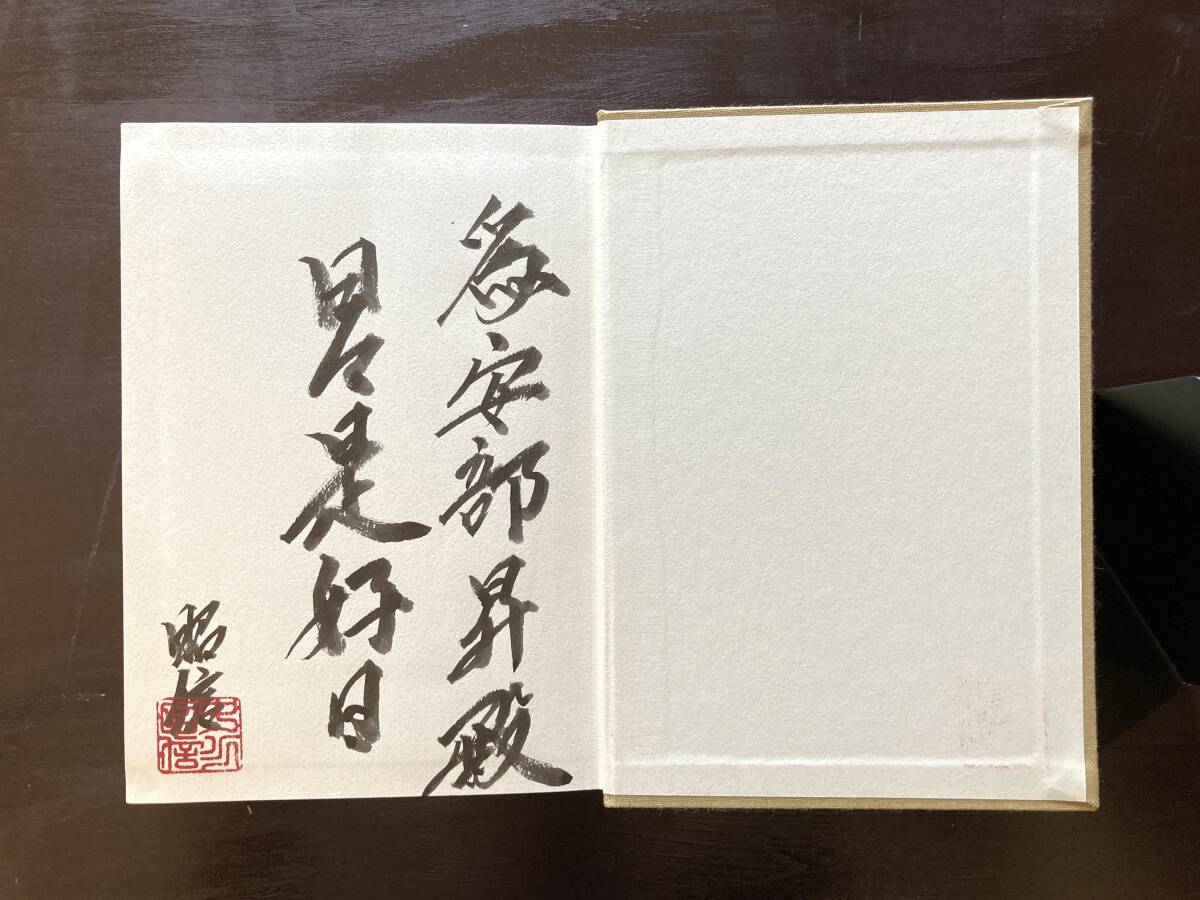 為安部昇殿
日々是好日
昭信